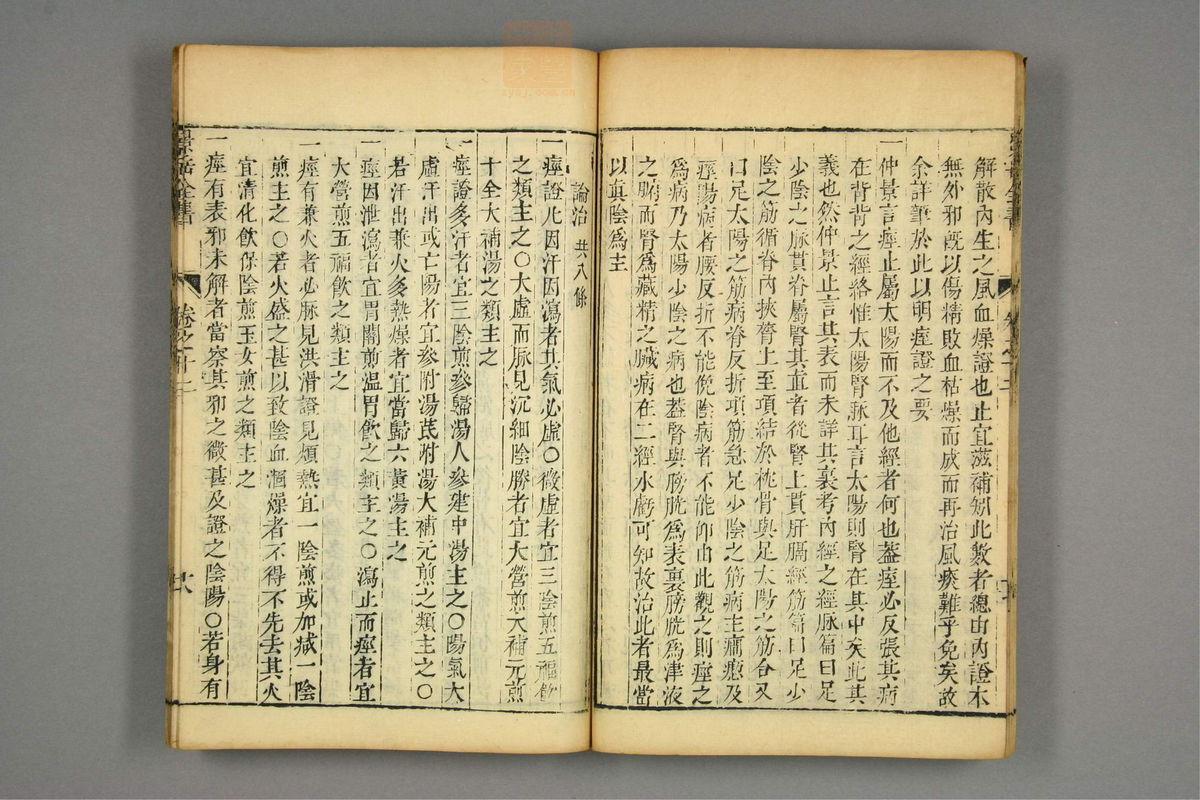 解散內生之風血燥證也止宜滋補如此數者總由內證本
無外邪既以傷精敗血枯燥而成而再治風痰難乎免矣故
余詳筆於此以明痙證之要
一仲景言痙止屬太陽而不及他經者何也蓋痙必反張其病
在背背之經絡惟太陽腎脉耳言太陽則腎在其中矣此其
義也然仲景止言其表而未詳其裏考內經之經脉篇曰足
少陰之脉貫脊屬腎其直者從腎上貫肝膈經筋篇曰足少
陰之筋循脊內挾膂上至項結於枕骨與足太陽之筋合又
曰足太陽之筋病脊反折項筋急足少陰之筋病主癇瘛及
痙陽病者腰反折不能俛陰病者不能仰由此觀之則痙之
爲病乃太陽少陰之病也蓋腎與膀胱爲表裏膀胱爲津液
之腑而腎爲藏精之臟病在二經水虧可知故治此者最當
以眞陰爲主
論治 共八條
一痙證凡因汗因瀉者其氣必虛〇微虛者宜三陰煎五福飲
之類主之〇大虛而脈見沉細陰勝者宜大營煎大補元煎
十全大補湯之類主之
一痙證多汗者宜三陰煎參歸湯人參建中湯主之〇陽氣大
虛汗出或亡陽者宜參附湯芪附湯大補元煎之類主之〇
若汗出兼火多熱燥者宜當歸六黃湯主之
一痙因泄瀉者宜胃關煎溫胃飲之類主之〇瀉止而痙者宜
大營煎五福飲之類主之
一痙有兼火者必脈見洪滑證見煩熱宜一陰煎或加減一陰
煎主之〇若火盛之甚以致陰血涸燥者不得不先去其火
宜清化飲保陰煎玉女煎之類主之
一痙有表邪未解者當察其邪之微甚及證之陰陽〇若身有
景岳全書
卷之十二